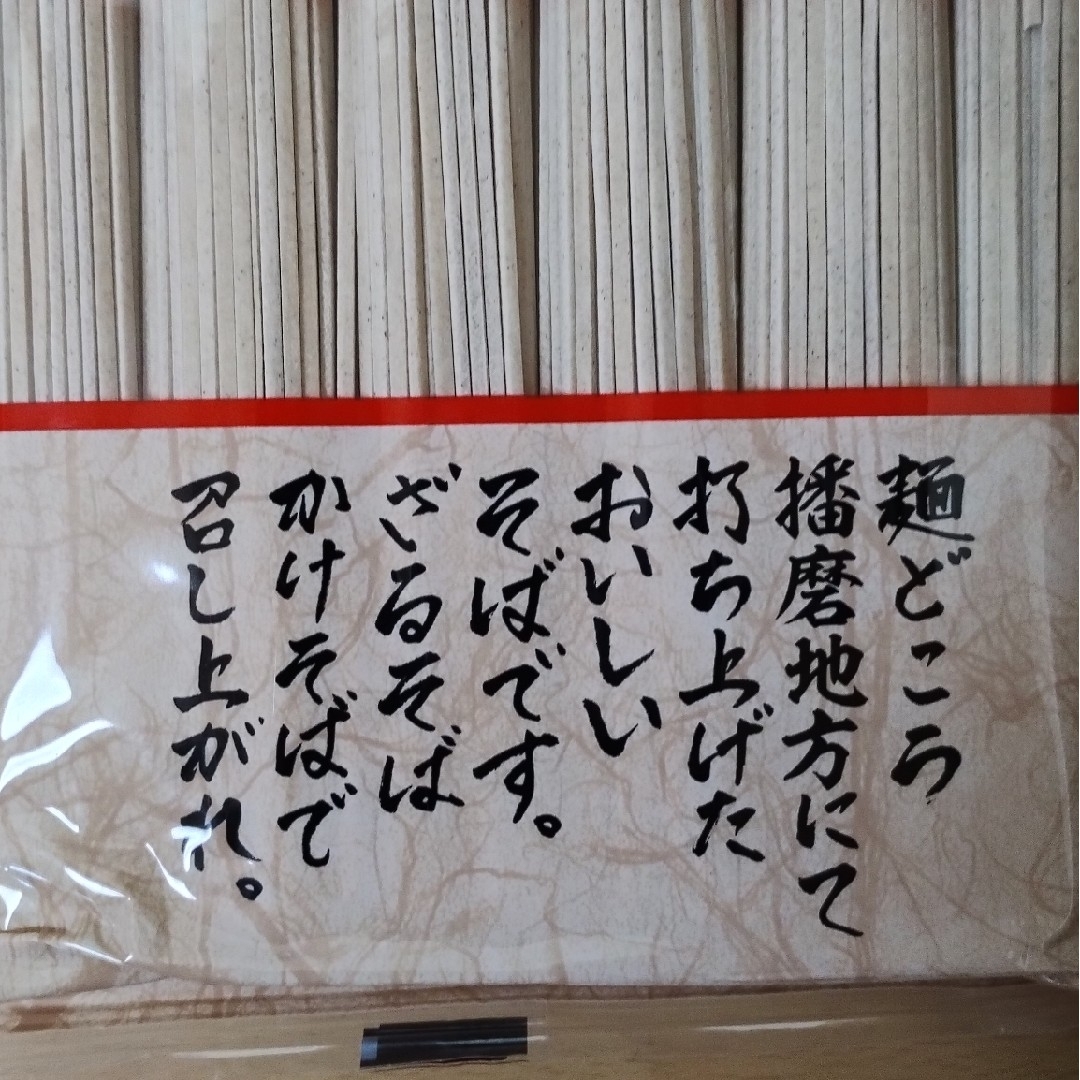 麺どころ
播磨地方にて
打ち上げた
おいしい
そばです。
ざるそば
かけそばで
召し上がれ。